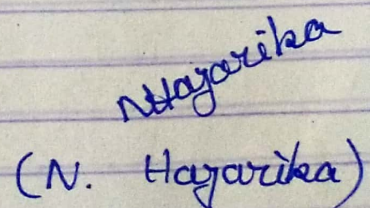 NHazarika
(N. Hazarika)